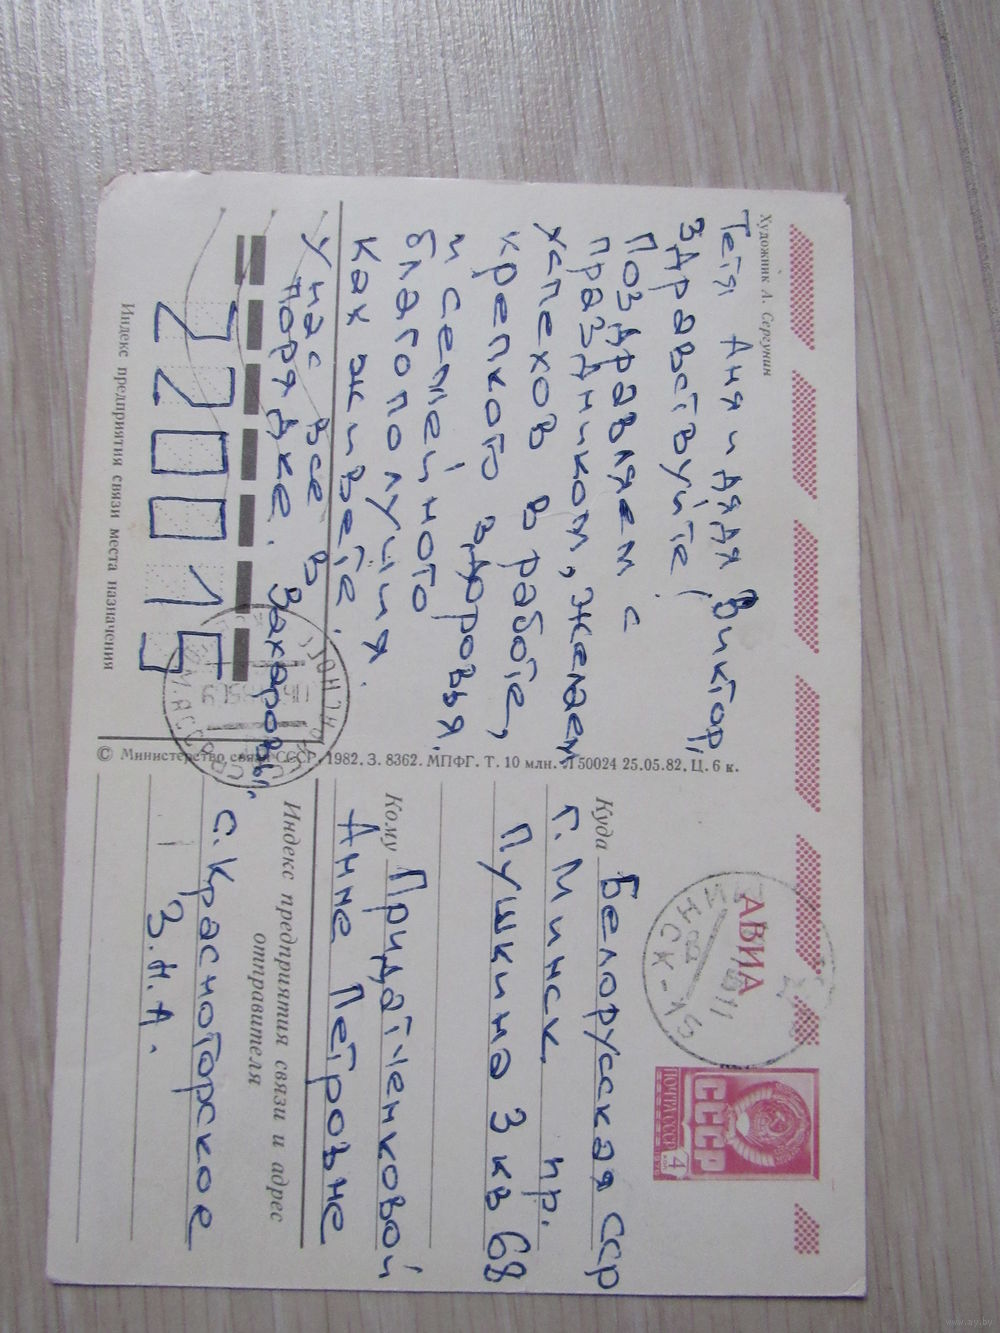 Художник А. Сергунин
Тетя Аня и дядя Виктор,
Здравствуйте!
Поздравляем с
праздником, желаем
успехов в работе,
крепкого здоровья
и семейного
благополучия.
Как живете.
У нас все в
порядке. Захаровы.
220015
Индекс предприятия связи места назначения
© Министерство связи СССР, 1982. З. 8362. МПФГ. Т. 10 млн. Л50024 25.05.82. Ц. 6 к.
АВИА
МИНСК-
ПОЧТА СССР
СССР
4
Куда Белорусская ССР
г. Минск пр.
Пушкина 3 кв 68
Кому Придатченковой
Анне Петровне
Индекс предприятия связи и адрес
отправителя
с. Красногорское
З.Н.А.
www.ay.by